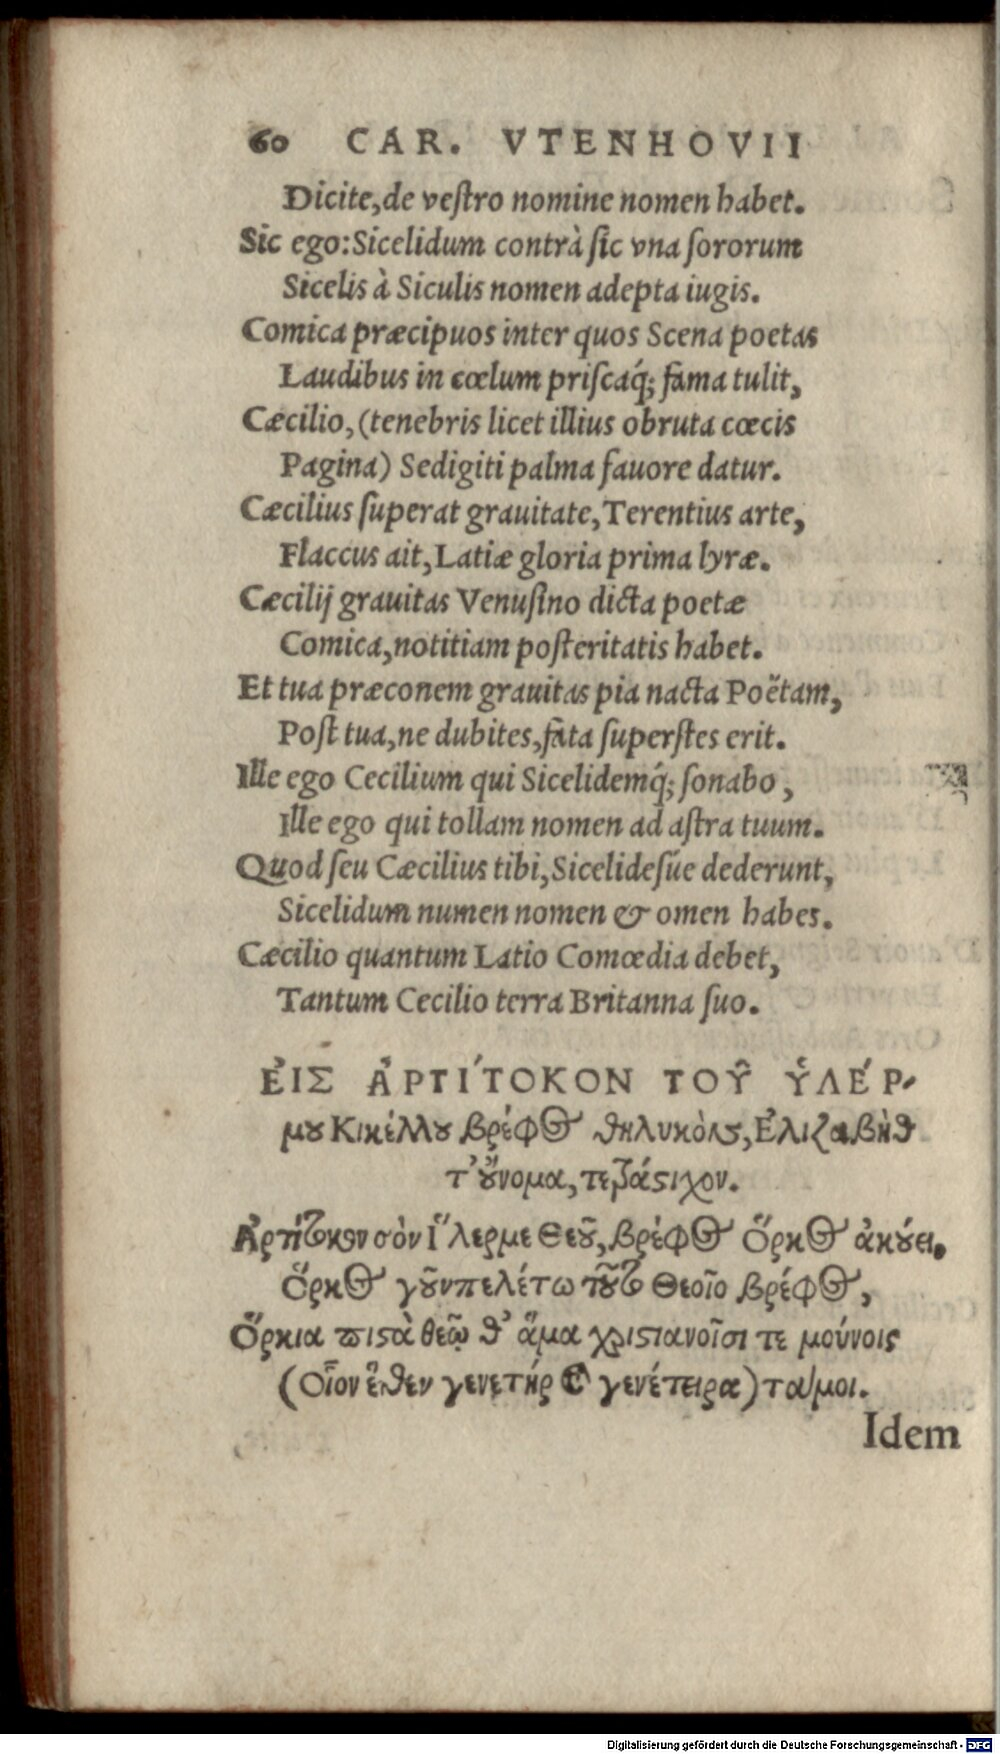 60 CAR. VTENHOVII
Dicite, de veſtro nomine nomen habet.
Sic ego: Sicelidum contrà ſic vna ſororum
Sicelis à Siculis nomen adepta iugis.
Comica præcipuos inter quos Scena poetas
Laudibus in cœlum priſcaq́; fama tulit,
Cæcilio, (tenebris licet illius obruta cœcis
Pagina) Sedigiti palma fauore datur.
Cæcilius ſuperat grauitate, Terentius arte,
Flaccus ait, Latiæ gloria prima lyræ.
Cæcilij grauitas Venuſino dicta poetæ
Comica, notitiam poſteritatis habet.
Et tua præconem grauitas pia nacta Poëtam,
Poſt tua, ne dubites, fata ſuperſtes erit.
Ille ego Cecilium qui Sicelidemq́; ſonabo,
Ille ego qui tollam nomen ad aſtra tuum.
Quod ſeu Cæcilius tibi, Sicelideſúe dederunt,
Sicelidum numen nomen & omen habes.
Cæcilio quantum Latio Comœdia debet,
Tantum Cecilio terra Britanna ſuo.
ἘΙΣ ἈΡΤΙΤΟΚΟΝ ΤΟΥ͂ ὙΛΕΡ-
μου Κικέλλου βρέφος θηλυκὸν, Ἐλιζαβὴθ
τ' οὔνομα, τετράστιχον.
Ἀρτίτοκον σὸν Ἵλερμε Θεοῦ, βρέφος Ὅρκος ἀκούει.
Ὅρκος γοῦν πελέτω τοῦτο Θεοῖο βρέφος,
Ὅρκια πιστὰ θεῷ θ' ἅμα χριστιανοῖσί τε μούνοις
(Οἷον ἕθεν γενετήρ καὶ γενέτειρα) ταμοι.
Idem
Digitalisierung gefördert durch die Deutsche Forschungsgemeinschaft - DFG